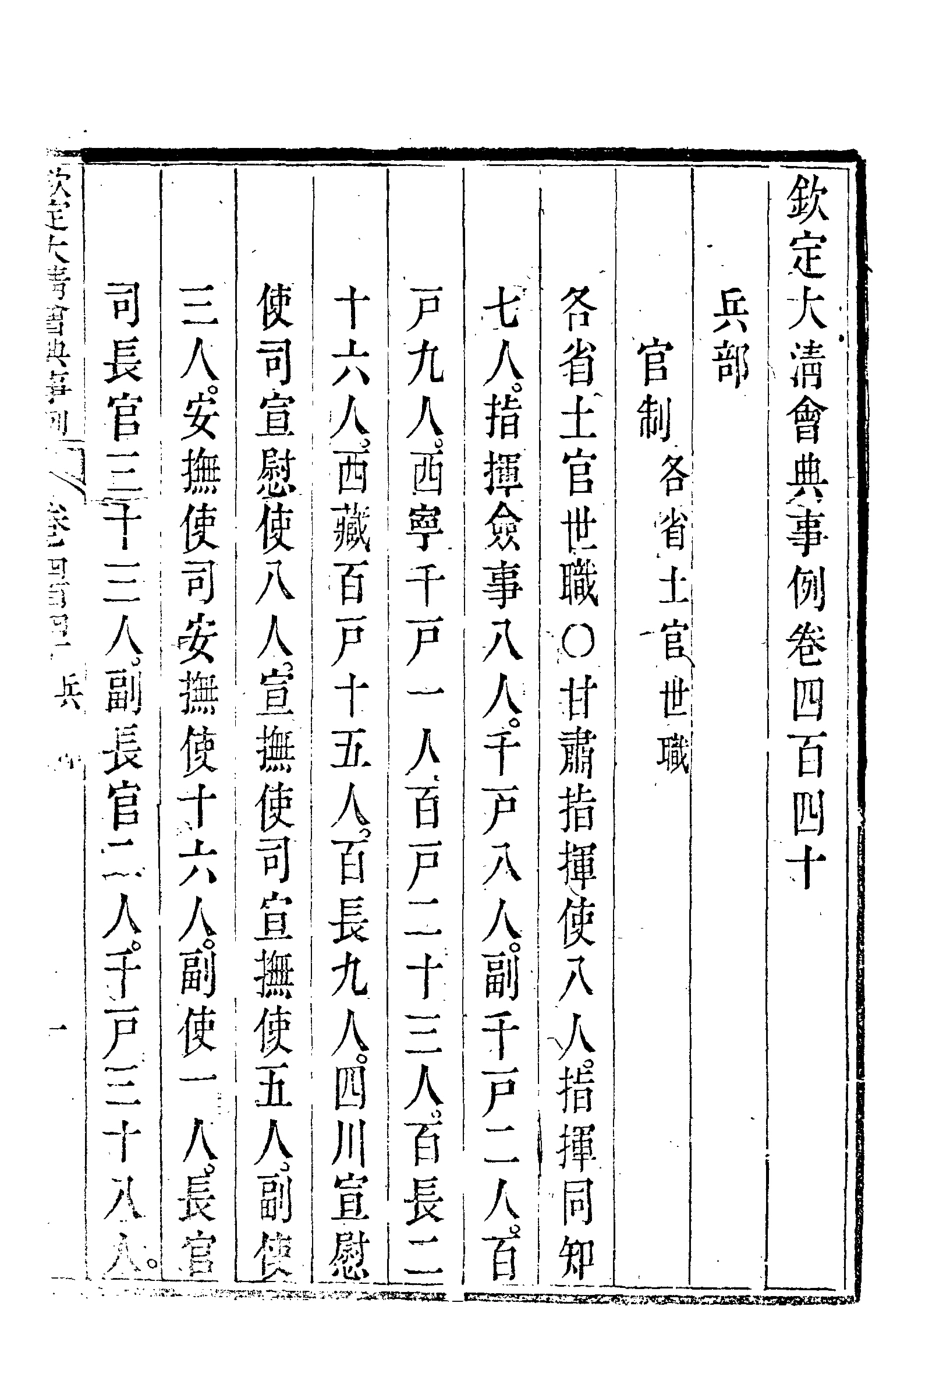 欽定大淸會典事例卷四百四十
兵部
官制 各省土官世職
各省土官世職〇甘肅指揮使八人。指揮同知
七人。指揮僉事八人。千戸八人。副千戸二人。百
戸九人。西寧千戸一人百戸二十三人。百長二
十六人。西藏百戸十五人。百長九人。四川宣慰
使司宣慰使八人。宣撫使司宣撫使五人。副使
三人。安撫使司安撫使十六人。副使一人。長官
司長官三十三人。副長官二人。千戸三十八人。
欽定大清會典事例 卷四百四十 兵 一